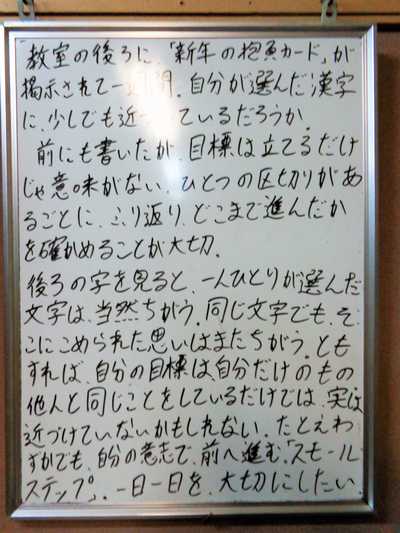 教室の後ろに、「新年の抱負カード」が
掲示されて一週間。自分が選んだ漢字
に、少しでも近づいているだろうか。
前にも書いたが、目標は立てるだけ
じゃ意味がない。ひとつの区切りがあ
るごとに、ふり返り、どこまで進んだか
を確かめることが大切。
後ろの字を見ると、一人ひとりが選んだ
文字は、当然ちがう。同じ文字でも、そ
こにこめられた思いはまたちがう。とも
すれば、自分の目標は、自分だけのもの
他人と同じことをしているだけでは、実は
近づけていないかもしれない。たとえわ
ずかでも、自分の意志で、前へ進む「スモール
ステップ」。一日一日を、大切にしたい